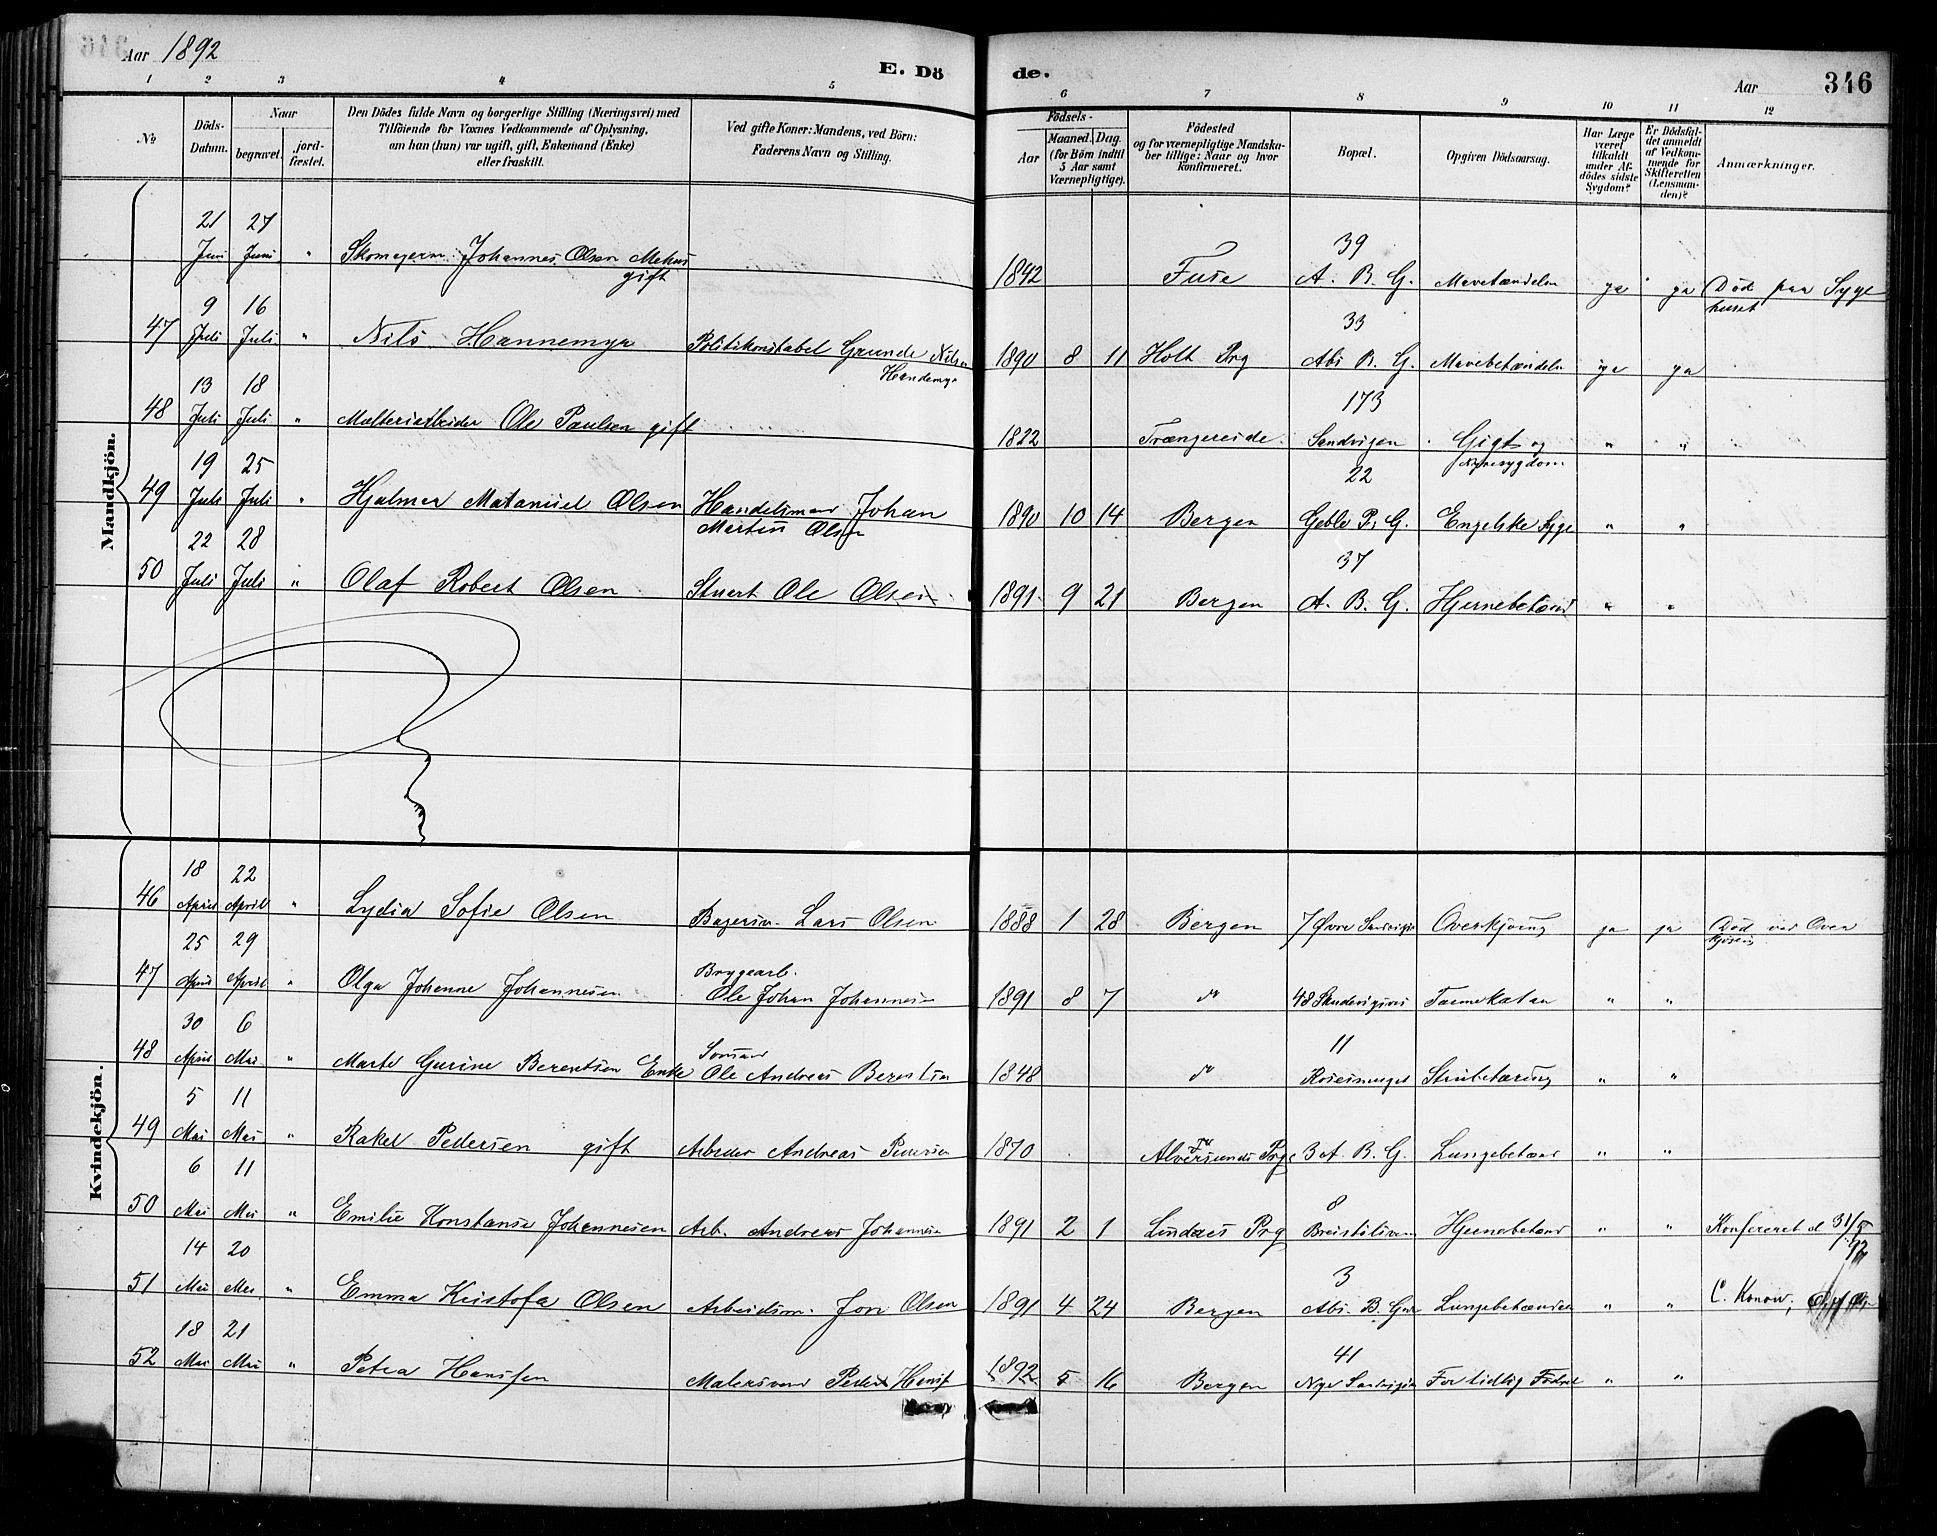 Aar 1892
E. Dö
de.
Aar 346
1 2 3 4 5 6 7 8 9 10 11 12
No
Döds-Datum.
Naar
begravet.
jord-fæstet.
Den Dödes fulde Navn og borgerlige Stilling (Næringsvei) med
Tilföiende for Voxnes Vedkommende af Oplysning,
om han (hun) var ugift, gift, Enkemand (Enke)
eller fraskilt.
Ved gifte Koner: Mandens, ved Börn:
Faderens Navn og Stilling.
Födsels-
Aar
Maaned. Dag.
(for Börn indtil
5 Aar samt
Værnepligtige).
Födested
og for værnepligtige Mandska-
ber tillige: Naar og hvor
Konfirmeret.
Bopæl.
Opgiven Dödsaarsag.
Har Læge
været
tilkaldt
under Af-
dödes sidste
Sygdom?
Er Dödsfal-
det anmeldt
af Vedkom-
mende for
Skifteretten
(Lensman-
den)?
Anmærkninger.
Mandkjön.
21 27 39
Juni Juni " Skomagerm. Johannes Olsen Mehus 1842 Fuse A. B. G. Mavebetændelse ja ja Död paa Syge
gift huset
9 16 33
47 Juli Juli " Nils Hannemyr Politikonstabel Grunde Nilsen 1890 8 11 Holt Prg Abs B. G. Mavebetændelse ja ja
Handemyr
13 18 173
48 Juli Juli " Malteriarbeider Ole Paulsen gift 1822 Trængereide Sandvigen Gigt og " "
Nyresygdom
19 25 22
49 Juli Juli " Hjalmar Matanuel Olsen Handelsmand Johan 1890 10 14 Bergen Geble P. G. Engelske Syge " "
Martin Olsen
22 28 37
50 Juli Juli " Olaf Robert Olsen Stuert Ole Olsen 1891 9 21 Bergen A. B. G. Hjernebetænd " "
Kvindekjön.
18 22
46 April April " Lydia Sofie Olsen Bagersv. Lars Olsen 1888 1 28 Bergen 7 Øvre Sandvigen Overkjöring ja ja Död ved Over
kjöring
25 29 Bryggearb.
47 April April " Olga Johanne Johannesen Ole Johan Johannesen 1891 8 7 do 48 Sandvigsvei Tarmekatar " "
30 6 Sömand 11
48 April Mai " Marte Gurine Berentsen Enke Ole Andreas Berentsen 1848 do Rosesmuget Strubetæring " "
5 11
49 Mai Mai " Rakel Pedersen gift Arbeider Andreas Pedersen 1870 Alversunds Prg 3 A. B. G. Lungebetænd " "
6 11 8
50 Mai Mai " Emilie Konstanse Johannesen Arb. Andreas Johannesen 1891 2 1 Lindaas Prg Breistölsveien Hjernebetænd " " Konfereret d 31/5
14 20 3 92
51 Mai Mai " Emma Kristofa Olsen Arbeidsm. Jon Olsen 1891 4 24 Bergen Abs. B. Gade Lungebetændelse " " C. Konow,
18 21 41
52 Mai Mai " Petra Hansen Malersvend Peder Hansen 1892 5 16 Bergen Nye Sandvigsv For tidlig Födsel " "